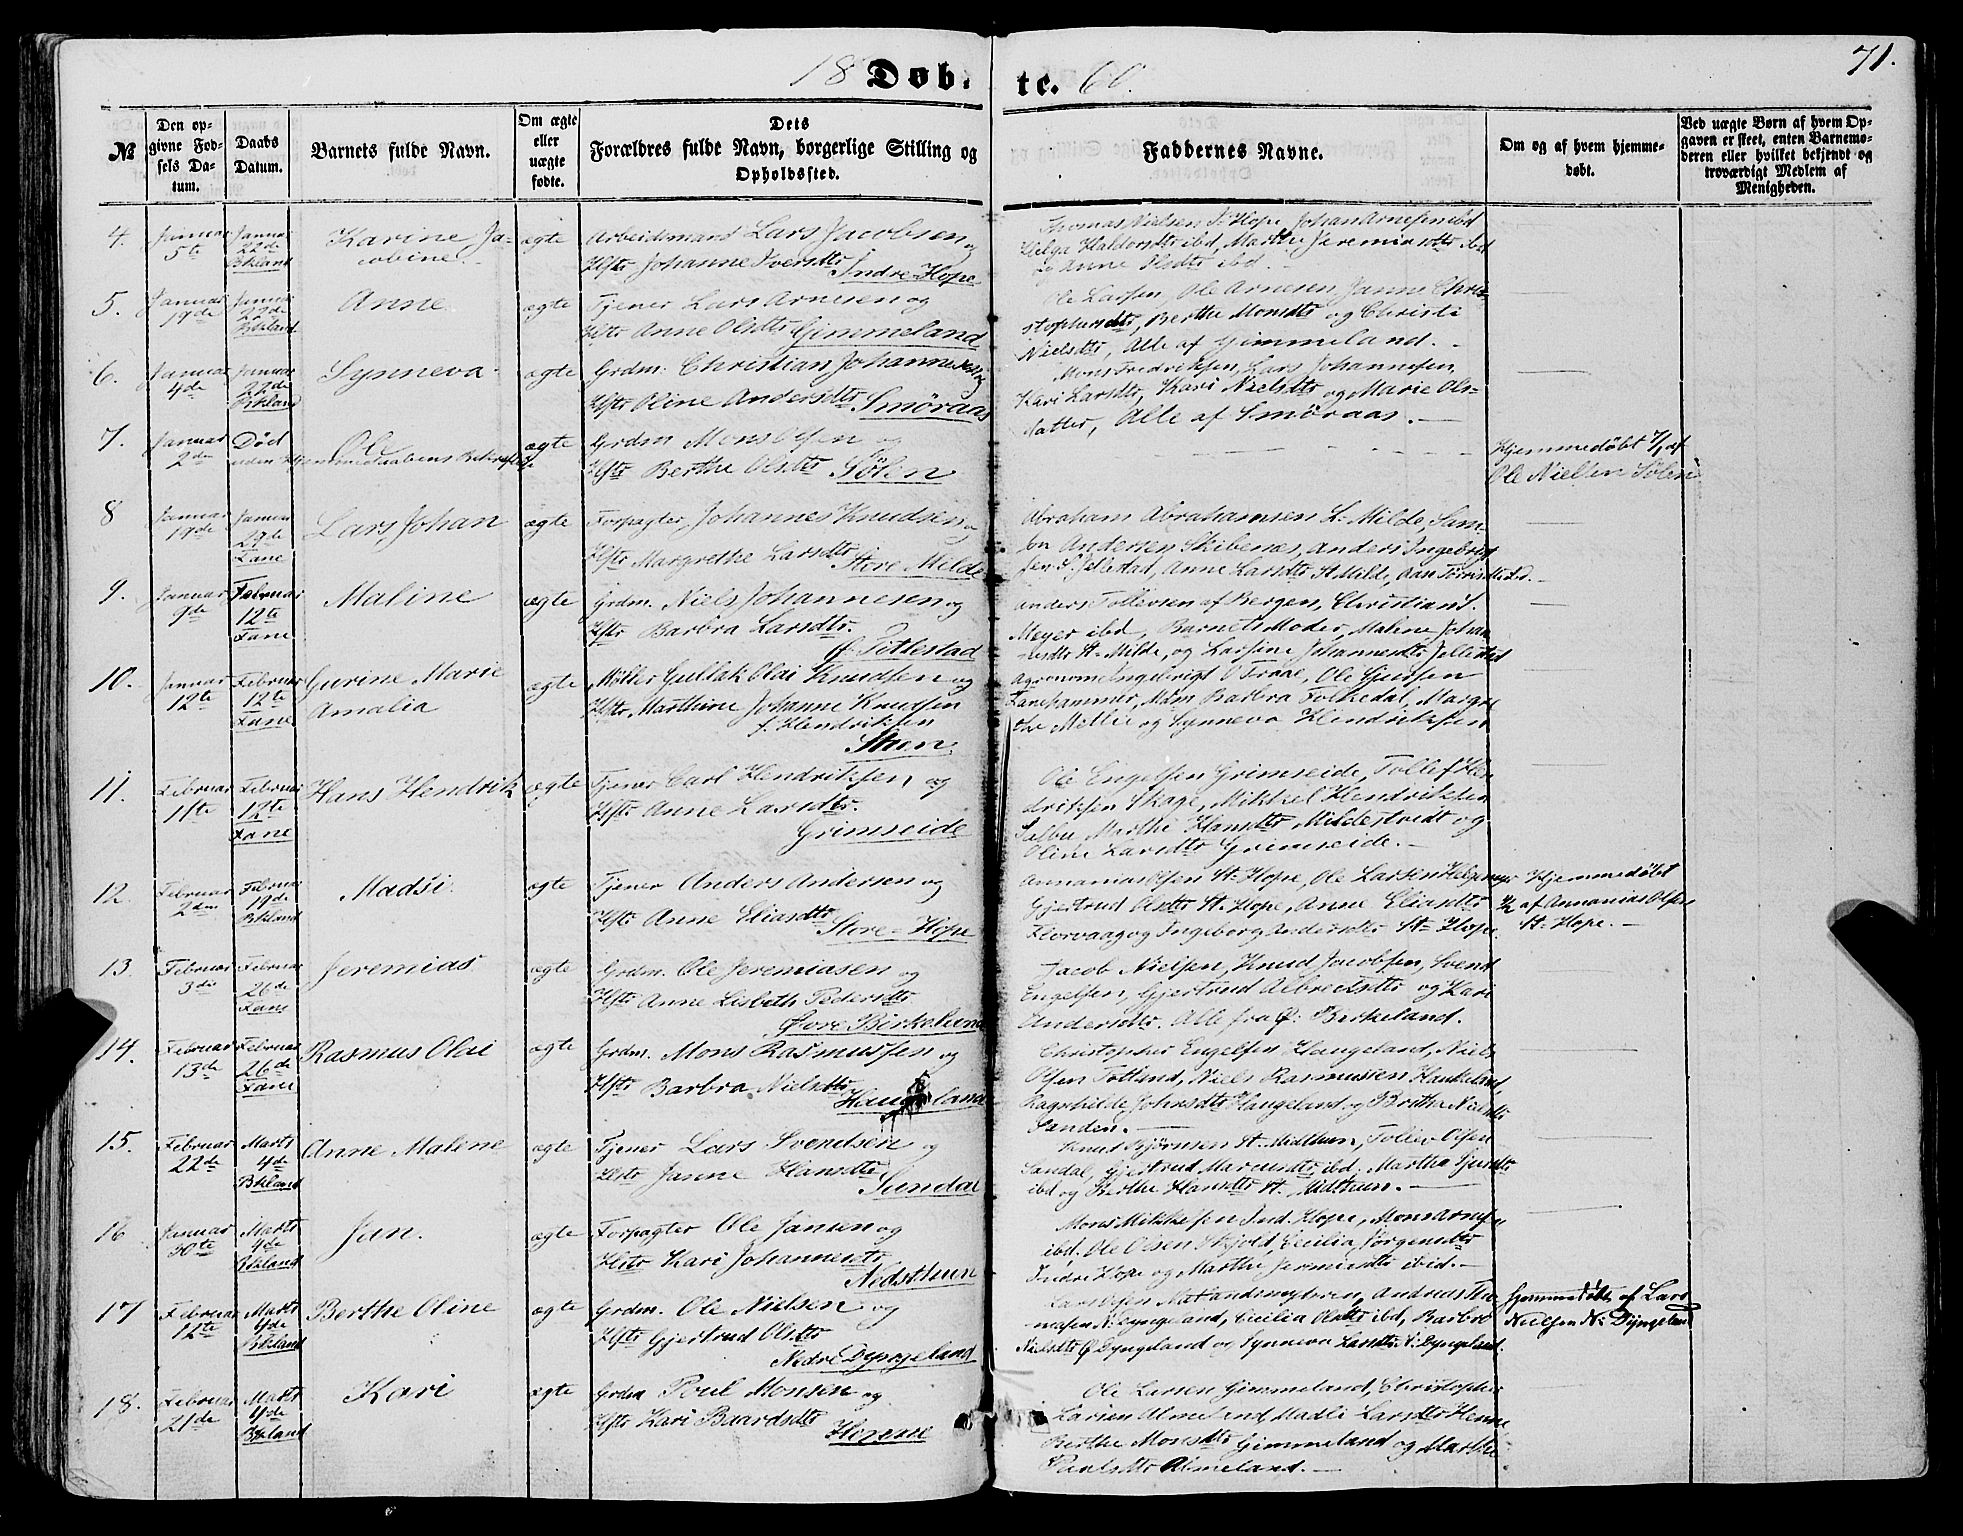 71.
18 Døbte. 60.
№
Den opgivne Fødsels Datum.
Daabs Datum.
Barnets fulde Navn.
Om ægte eller uægte fødte.
Dets Forældres fulde Navn, borgerlige Stilling og Opholdssted.
Faddernes Navne.
Om og af hvem hjemmedøbt.
Ved uægte Børn af hvem Opgaven er skeet, enten Barnemoderen eller hvilket bekjendt og troværdigt Medlem af Menigheden.
4. Januar 5te Januar 22de Bkland Karine Jacobine. ægte
Arbeidsmand Lars Jacobsen og
Hstr Johanne Iversdtr Indre-Hope
Thomas Nielsen I. Hope, Johan Arnesen ibd
Helga Haldorsdtr ibd, Marthe Jeremiasdtr ibd
og Anne Olsdtr ibd.
5. Januar 19de Januar 22de Bkland Anne ægte
Tjener Lars Arnesen og
Hstr Anne Olsdtr Gimmeland
Ole Larsen, Ole Arnesen, Janne Chri-
stophersdtr, Berthe Monsdtr og Christi
Nielsdtr, Alle af Gimmeland.
6. Januar 4de Januar 22de Bkland Synneva ægte
Grdm. Christian Johannesen og
Hstr Oline Andersdtr Smøraas
Mons Fredriksen, Lars Johannesen,
Kari Larsdtr, Kari Nielsdtr og Marie Ols-
datter, Alle af Smøraas.
7. Januar 2den Død uden Hjemmedaabens Bekræftelse Ole ægte
Grdm Mons Olsen og
Hstr Berthe Olsdtr Sølen
Hjemmedøbt 7/1 af
Ole Nielsen Sølen
8 Januar 19de Januar 29de Fane Lars Johan ægte
Forpagter Johannes Knudsen og
Hstr Margrethe Larsdtr Store Milde
Abraham Abrahamsen L. Milde, Sam-
son Andersen Skibenæs, Anders Ingebrigt-
sen S. Jellestad, Anne Larsdtr St Milde,
9. Januar 9de Februar 12te Fane Maline ægte
Grdm. Niels Johannesen og
Hstr Barbra Larsdtr.
Ø. Titlestad
Anders Tollevsen af Bergen, Christian S.
Meyer ibd, Barnets Moder, Malene Johan-
nesdtr St. Milde, og Larsine Johannesdtr Jellestad
10. Januar 12te Februar 12te Fane Gurine Marie Amalia ægte
Møller Gullak Olai Knudsen og
Hstr Marthine Johanne Knudsen
f. Hendriksen
Steen
Agronome Ingebrigt O Traae, Ole Gjertsen
Fanehammer, Mdm Barbra Folkedal, Margre-
the Mellie og Synneva Hendriksen
11. Februar 1ste Februar 12te Fane Hans Hendrik ægte
Tjener Carl Hendriksen og
Hstr Anne Larsdtr.
Grimseide
Ole Engelsen Grimseide, Tollef Hen-
driksen Skage, Mikkel Hendriksen
Marthe Hansdtr Mildestvedt og
Oline Larsdtr Grimseide.
12. Februar 2den Februar 19de Bkland Madsi ægte
Tjener Anders Andersen og
Hstr Anne Eliasdtr
Store-Hope
Annanias Olsen St. Hope, Ole Larsen
Gjertrud Olsdtr St. Hope, Anne Eliasdtr
Klorvaag og Ingeborg Andersdtr St. Hope.
Hjemmedøbt
af Annanias Olsen
St. Hope.
13. Februar 3die Februar 26de Fane Jeremias ægte
Grdm. Ole Jeremiasen og
Hstr Anne Lisbeth Pedersdtr
Øvre Birkeland
Jacob Nielsen, Knud Jacobsen, Svend
Engelsen, Gjertrud Albretsdtr og Kari
Andersdtr. Alle fra Ø. Birkeland.
14. Februar 13de Februar 26de Fane Rasmus Olai ægte
Grdm. Mons Rasmussen og
Hstr Barbra Nielsdtr
Haugeland
Christopher Engelsen Haugeland, Niels
Olsen Totland, Niels Rasmussen Haukeland,
Ragnhilde Johnsdtr Haugeland og Berthe Nielsdtr
Sanden.
15. Februar 22de Marts 4de Bkland Anne Malene ægte
Tjener Lars Svendsen og
Hstr Janne Hansdtr
Sandal
Knud Bjørnsen St. Midthun, Tollev Olsen
Sandal, Gjertrud Marcusdtr ibd. Martha
ibd og Berthe Hansdtr St. Midthun.
16 Januar 30te Marts 4de Bkland Jan. ægte
Forpagter Ole Jansen og
Hstr Kari Johannesdtr
Nedsthun
Mons Mikkelsen Ind. Hope, Mons Arnesen
ibd. Ole Olsen Skjold, Cecilia Jørgensdtr
Indre Hope og Marthe Jermiasdtr ibid.
17 Februar 12te Marts 4de Bkland Berthe Oline ægte
Grdm. Ole Nielsen og
Hstr Gjertrud Olsdtr
Nedre Dyngeland
Lars Olsen Andreas Tho-
masen N. Dyngeland, Cecilia Olsdtr ibd, Barbro
Nielsdtr Ø Dyngeland og Synneva Larsdtr N. Dyngeland.
Hjemmedøbt af Lars
Nielsen N: Dyngeland
18. Februar 21de Marts 4de Bkland Kari ægte
Grdm Poul Monsen og
Hstr Kari Baardsdtr
Horene
Ole Larsen Gimmeland, Christopher
Larsen Almeland, Madli Larsdtr Henne,
Berthe Monsdtr Gimmeland og Marthe
Paulsdtr Almeland.